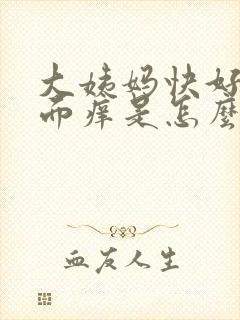 大姨妈快好
而痒是怎麼
血友人生